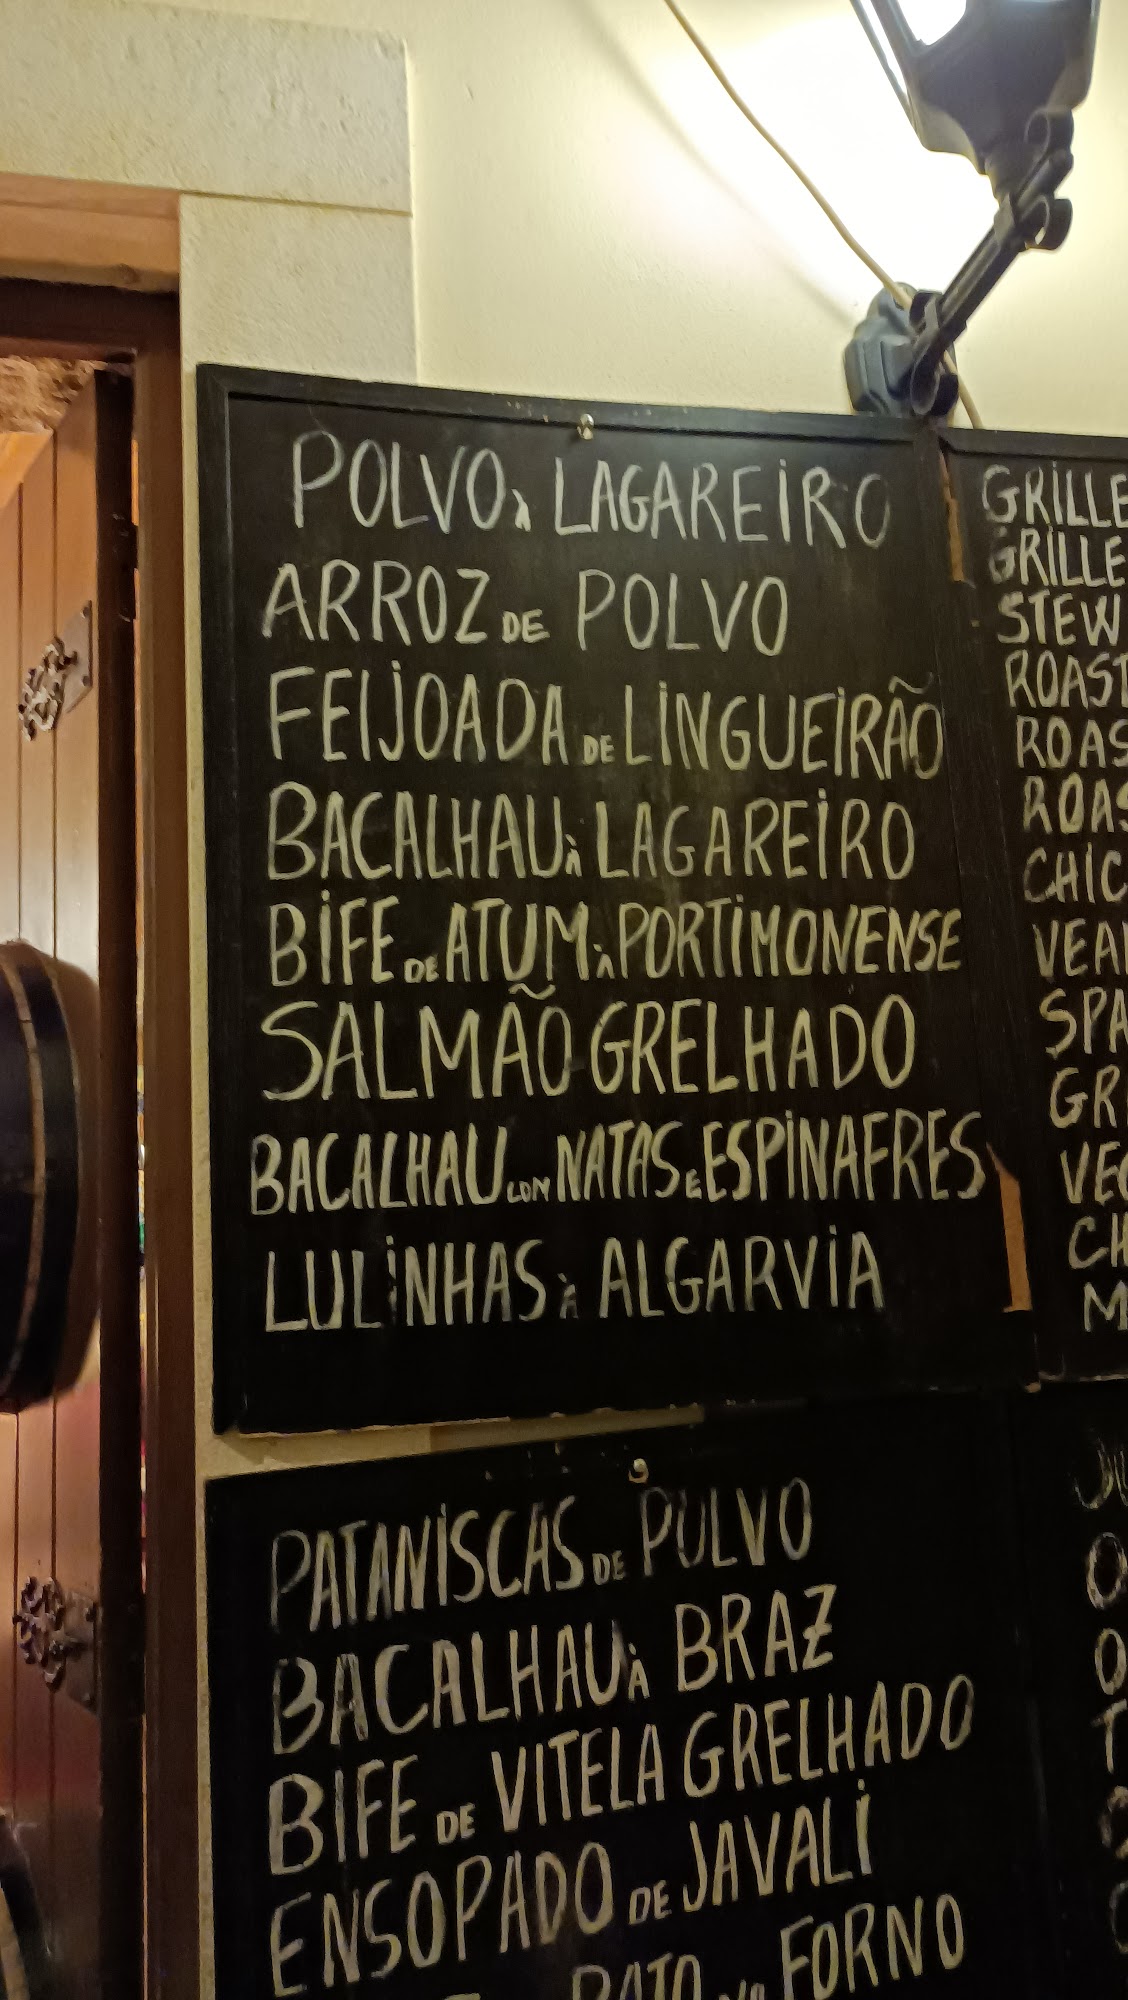 POLVO À LAGAREIRO
ARROZ DE POLVO
FEIJOADA DE LINGUEIRÃO
BACALHAU À LAGAREIRO
BIFE DE ATUM À PORTIMONENSE
SALMÃO GRELHADO
BACALHAU COM NATAS E ESPINAFRES
LULINHAS À ALGARVIA
PATANISCAS DE POLVO
BACALHAU À BRAZ
BIFE DE VITELA GRELHADO
ENSOPADO DE JAVALI
PATO NO FORNO
GRILLE
GRILLE
STEW
ROAST
ROAS
ROAS
CHIC
VEA
SPA
GR
VEG
CH
M